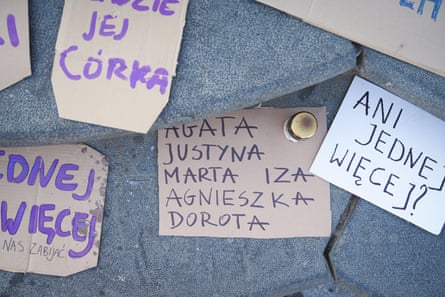 JEJ
CÓRKA
AGATA
JUSTYNA
MARTA IZA
AGNIESZKA
DOROTA
ANI
JEDNEJ
WIĘCEJ!?
JEDNEJ
WIĘCEJ
NAS ZABIJAĆ